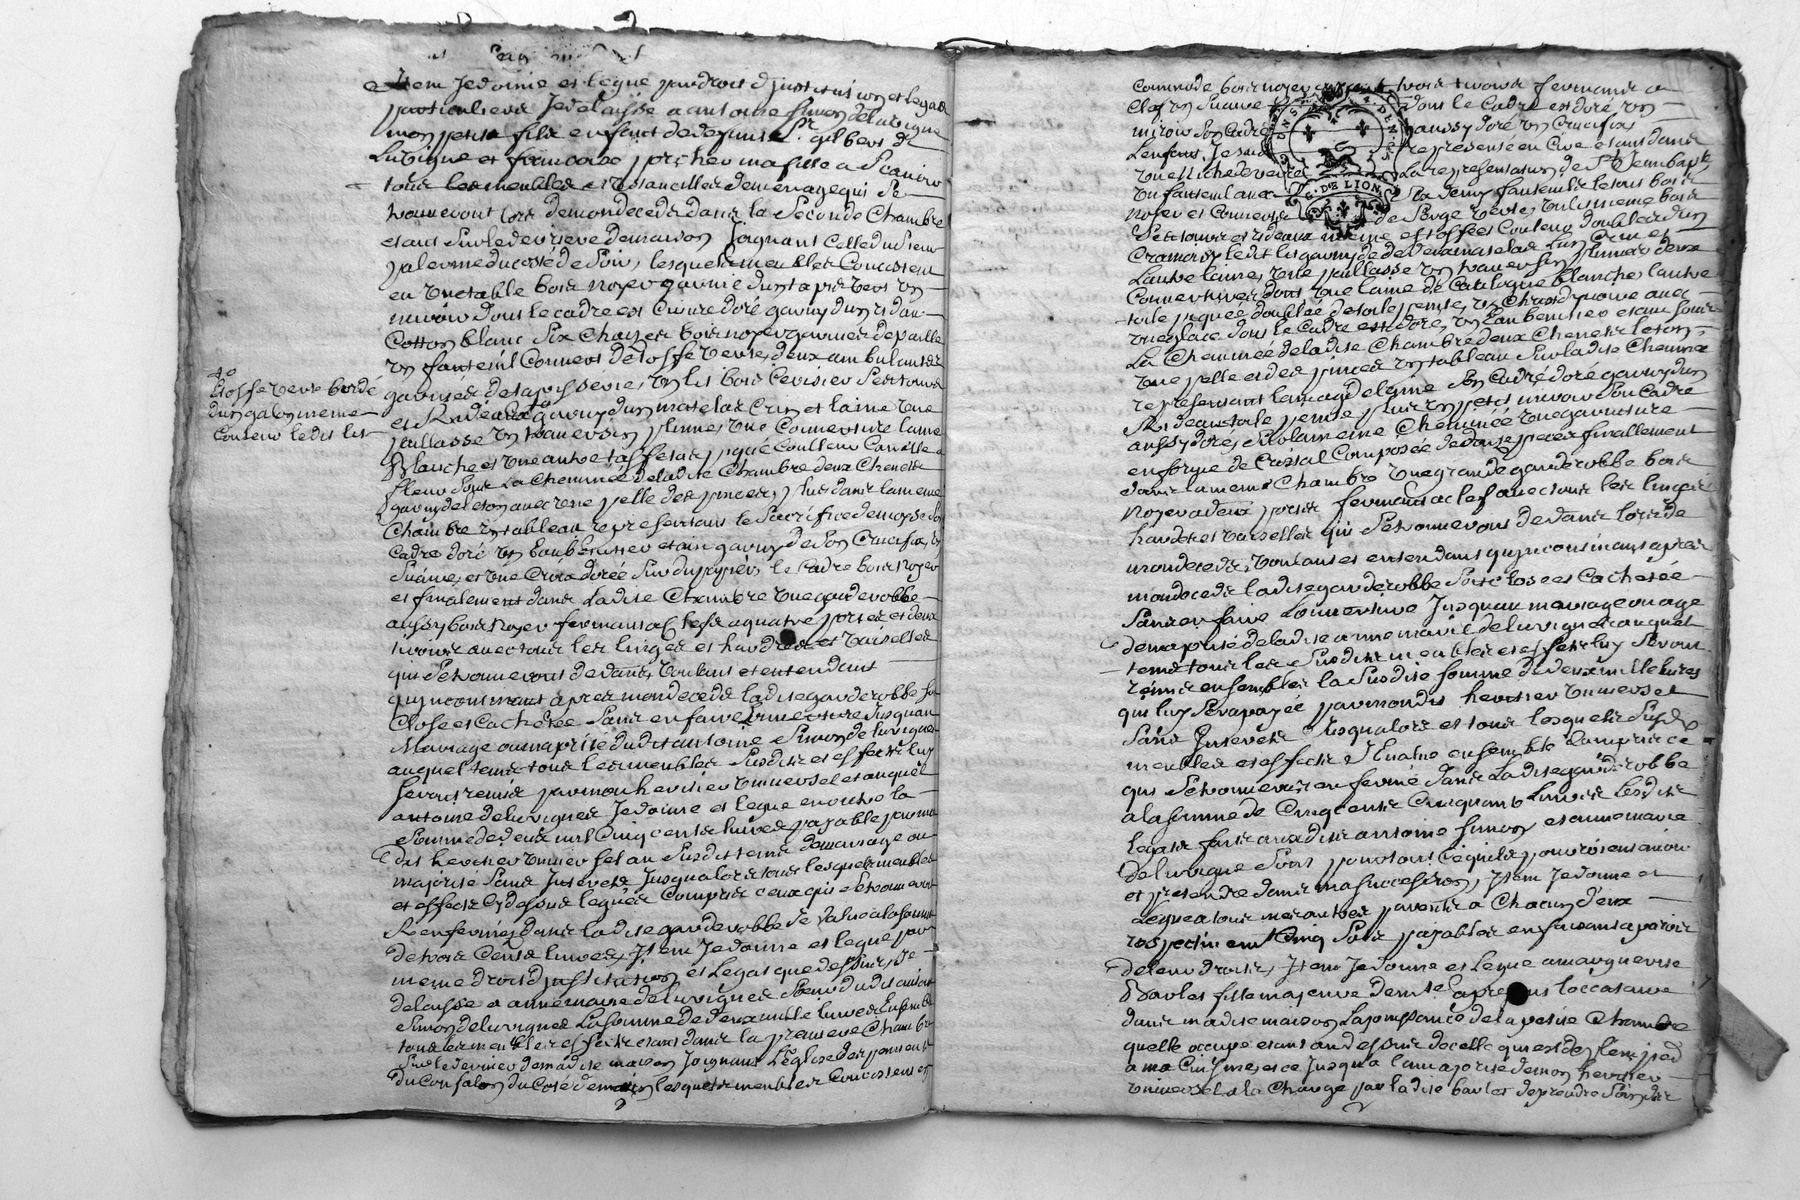 Item Je donne et legue par droit d'Institution et legat
particuliere Je delaisse a antoine Simon deluvigne
mon petit fils enfant de defunts Sr. gilbert de
Luvigne et francoise porcher ma fille a Scavoir
tous les meubles et Ustancilles de menage qui Se
trouveront lors de mon deceds dans la Seconde Chambre
etant Sur le derriere de maison Joignant Celle du Sieur
palerme du costé de Soir, lesquels meubles Consistent
en Une table bois noyer garnie dun tapis Vert Un
miroir dont le cadre est Cuivre doré garny dun rideau
Cotton blanc Six Chaizes bois noyer garnies de paille
Un fauteuil Couvert de Toffe Verte, deux ambulantes
garnies de tapisserie, Un lit bois Cerisier Pentoura
et Rideaux garny dun matelas Crin et laine Une
paillasse Un traversin plume, Une Couverture laine
Blanche et Une autre taffetas piqué Coulleur Canelle
fleur Pour La Cheminée de ladite Chambre deux Chenets
garny de leton avec Une pelle des pinces, plus dans la meme
Chambre Un tableau representant le Sacrifice de moyse Son
Cadre doré Un Baubenitier etain garny de Son Crucifix, Un
Suaire, et Une Croix dorée Sur du papier, le Cadre bois Noyer
et finalement dans Ladite Chambre Une garderobbe
aussy bois Noyer fermant a Clefs a quatre portes et deux
tiroirs avec tous les linges et hardes et Vaisselles
qui Se trouveront dedans, Voulant et entendant
qu'incontinant apres mon deceds ladite garderobbe Soit
Close et Cachetée Sans en faire Louverture Jusquau
Mariage ou majorité dudit antoine Simon de luvigne
auquel tems tous les meubles Susdits et effects luy
Seront remis par mon heritier Universel et auquel
antoine deluvigne Je donne et legue en outre la
Somme de deux mil Cinq cents livres payable par mon
dit heritier Universel au Susdit tems de mariage ou
majorité Sans Interets Jusqualors tous lesquels meubles
et effects Cy dessus legués Compris ceux qui Se trouveront
Renfermés dans ladite garderobbe de Valeur a la Somme
de trois Cents livres, Item Je donne et legue par
meme droit d'Institution et Legat que dessus, de
delaisse a anne marie deluvigne Soeur dudit antoine
Simon deluvigne La Somme de deux mille livres Ensemble
tous les meubles et effects etant dans la premiere Chambre
Sur le derrier de madite maison Joignant L'Eglise des penitents
du Confalon du Coté de matin lesquels meubles Consistent en
etoffe verte bordé
dun galon meme
Couleur ledit lit
Commode bois noyer trois tiroirs fermant a
Clef Un Suaire dont le Cadre est doré Un
miroir Son Cadre aussy doré Un Crucifix
Lenfant Jesus representé en Cire etant dans
Une Niche de verre La representation de St. Jean bapte
Un fauteuil avec Six demy fauteuils le tout bois
noyer et Couverts de Serge Verte, Un lit meme bois
Pentoura et rideaux meme etoffe et Couleur doublés dun
Cramoizy ledit lit garny de deux matelas Lun Crin et
Lautre laine, Une paillasse Un traversin plume, deux
Couvertures dont Une laine de Catalogne blanche, lautre
toile piquée doublée de toile peinte, Un Chandy
Une glace dont le Cadre est doré, Un Baubenitier etain pour
La Cheminée de ladite Chambre deux Chenets leton,
Une pelle et des pinces Un tableau Sur ladite Cheminée
representant limage Son Cadre doré garny dun
Rideau toile peinte plus Un petit miroir Son Cadre
aussy doré, Sur la meme Cheminée Une garniture
en forme de Cristal Composée de douze pieces finallement
dans la meme Chambre Une grande garderobbe bois
Noyer a deux portes fermant a clef avec tous les linges
hardes et Vaisselles qui Se trouveront dedans lors de
mon deceds, Voulant et entendant qu'incontinant apres
mon deceds ladite garderobbe Soit Close et Cachetée
Sans en faire Louverture Jusquau mariage ou age
de majorité de ladite anne marie de luvigne auquel
tems tous les Susdits meubles et effects luy Seront
remis ensemble la Susdite Somme de deux mille livres
qui luy Sera payée par mondit heritier Universel
Sans Interets Jusqualors et tous lesquels Susd.
meubles et effects ensemble Compris ce
qui Se trouvera enfermé dans Ladite garderobbe
a la Somme de Cinq cents Cinquante Livres Lesdits
legats faits auxdits antoine Simon et anne marie
de luvigne Sont pour tout ce qu'ils pourroient avoir
et pretendre dans ma Succession, Item Je donne et
Legue a tous mes autres parents a Chacun d'eux
respectivement Cinq Sols payables en faisant aparoir
de leur droits, Item Je donne et Legue a marguerite
Barlet fille majeure locataire
dans madite maison La Jouissance de la petite Chambre
quelle occupe etant au dessus de celle qui est de plein pied
a ma Cuisine, et ce Jusqu'a la majorité de mon heritier
Universel a la Charge par ladite barlet de prendre Soin des